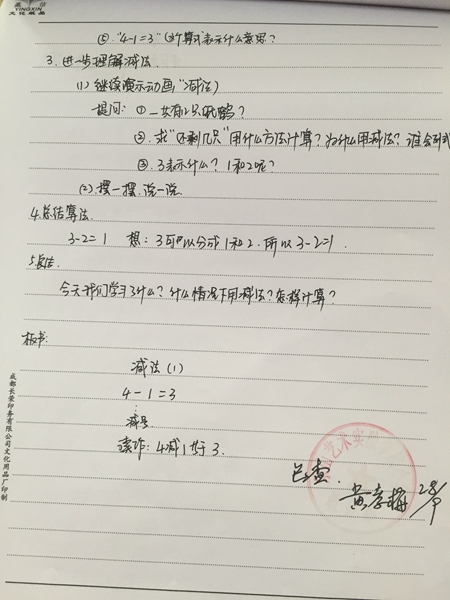 赢信
YINGXIN
文化用品
⑤."4-1=3"这个算式表示什么意思?
3.进一步理解减法.
(1)继续演示动画"减法)
提问: ①一共有几只吼鹤?
②.求"还剩几只"用什么方法计算?为什么用减法?谁会列式
③.3表示什么?1和2呢?
(2).摆一摆.说一说.
4.总结算法.
3-2=1 想:3可以分成1和2.所以3-2=1.
5.总结.
今天我们学习了什么?什么情况下用减法?怎样计算?
板书:
减法(1)
4-1=3
减号
读作:4减1等于3.
已查.
黄孝梅 28/9
艺术实
成都长荣印务有限公司文化用品厂印制